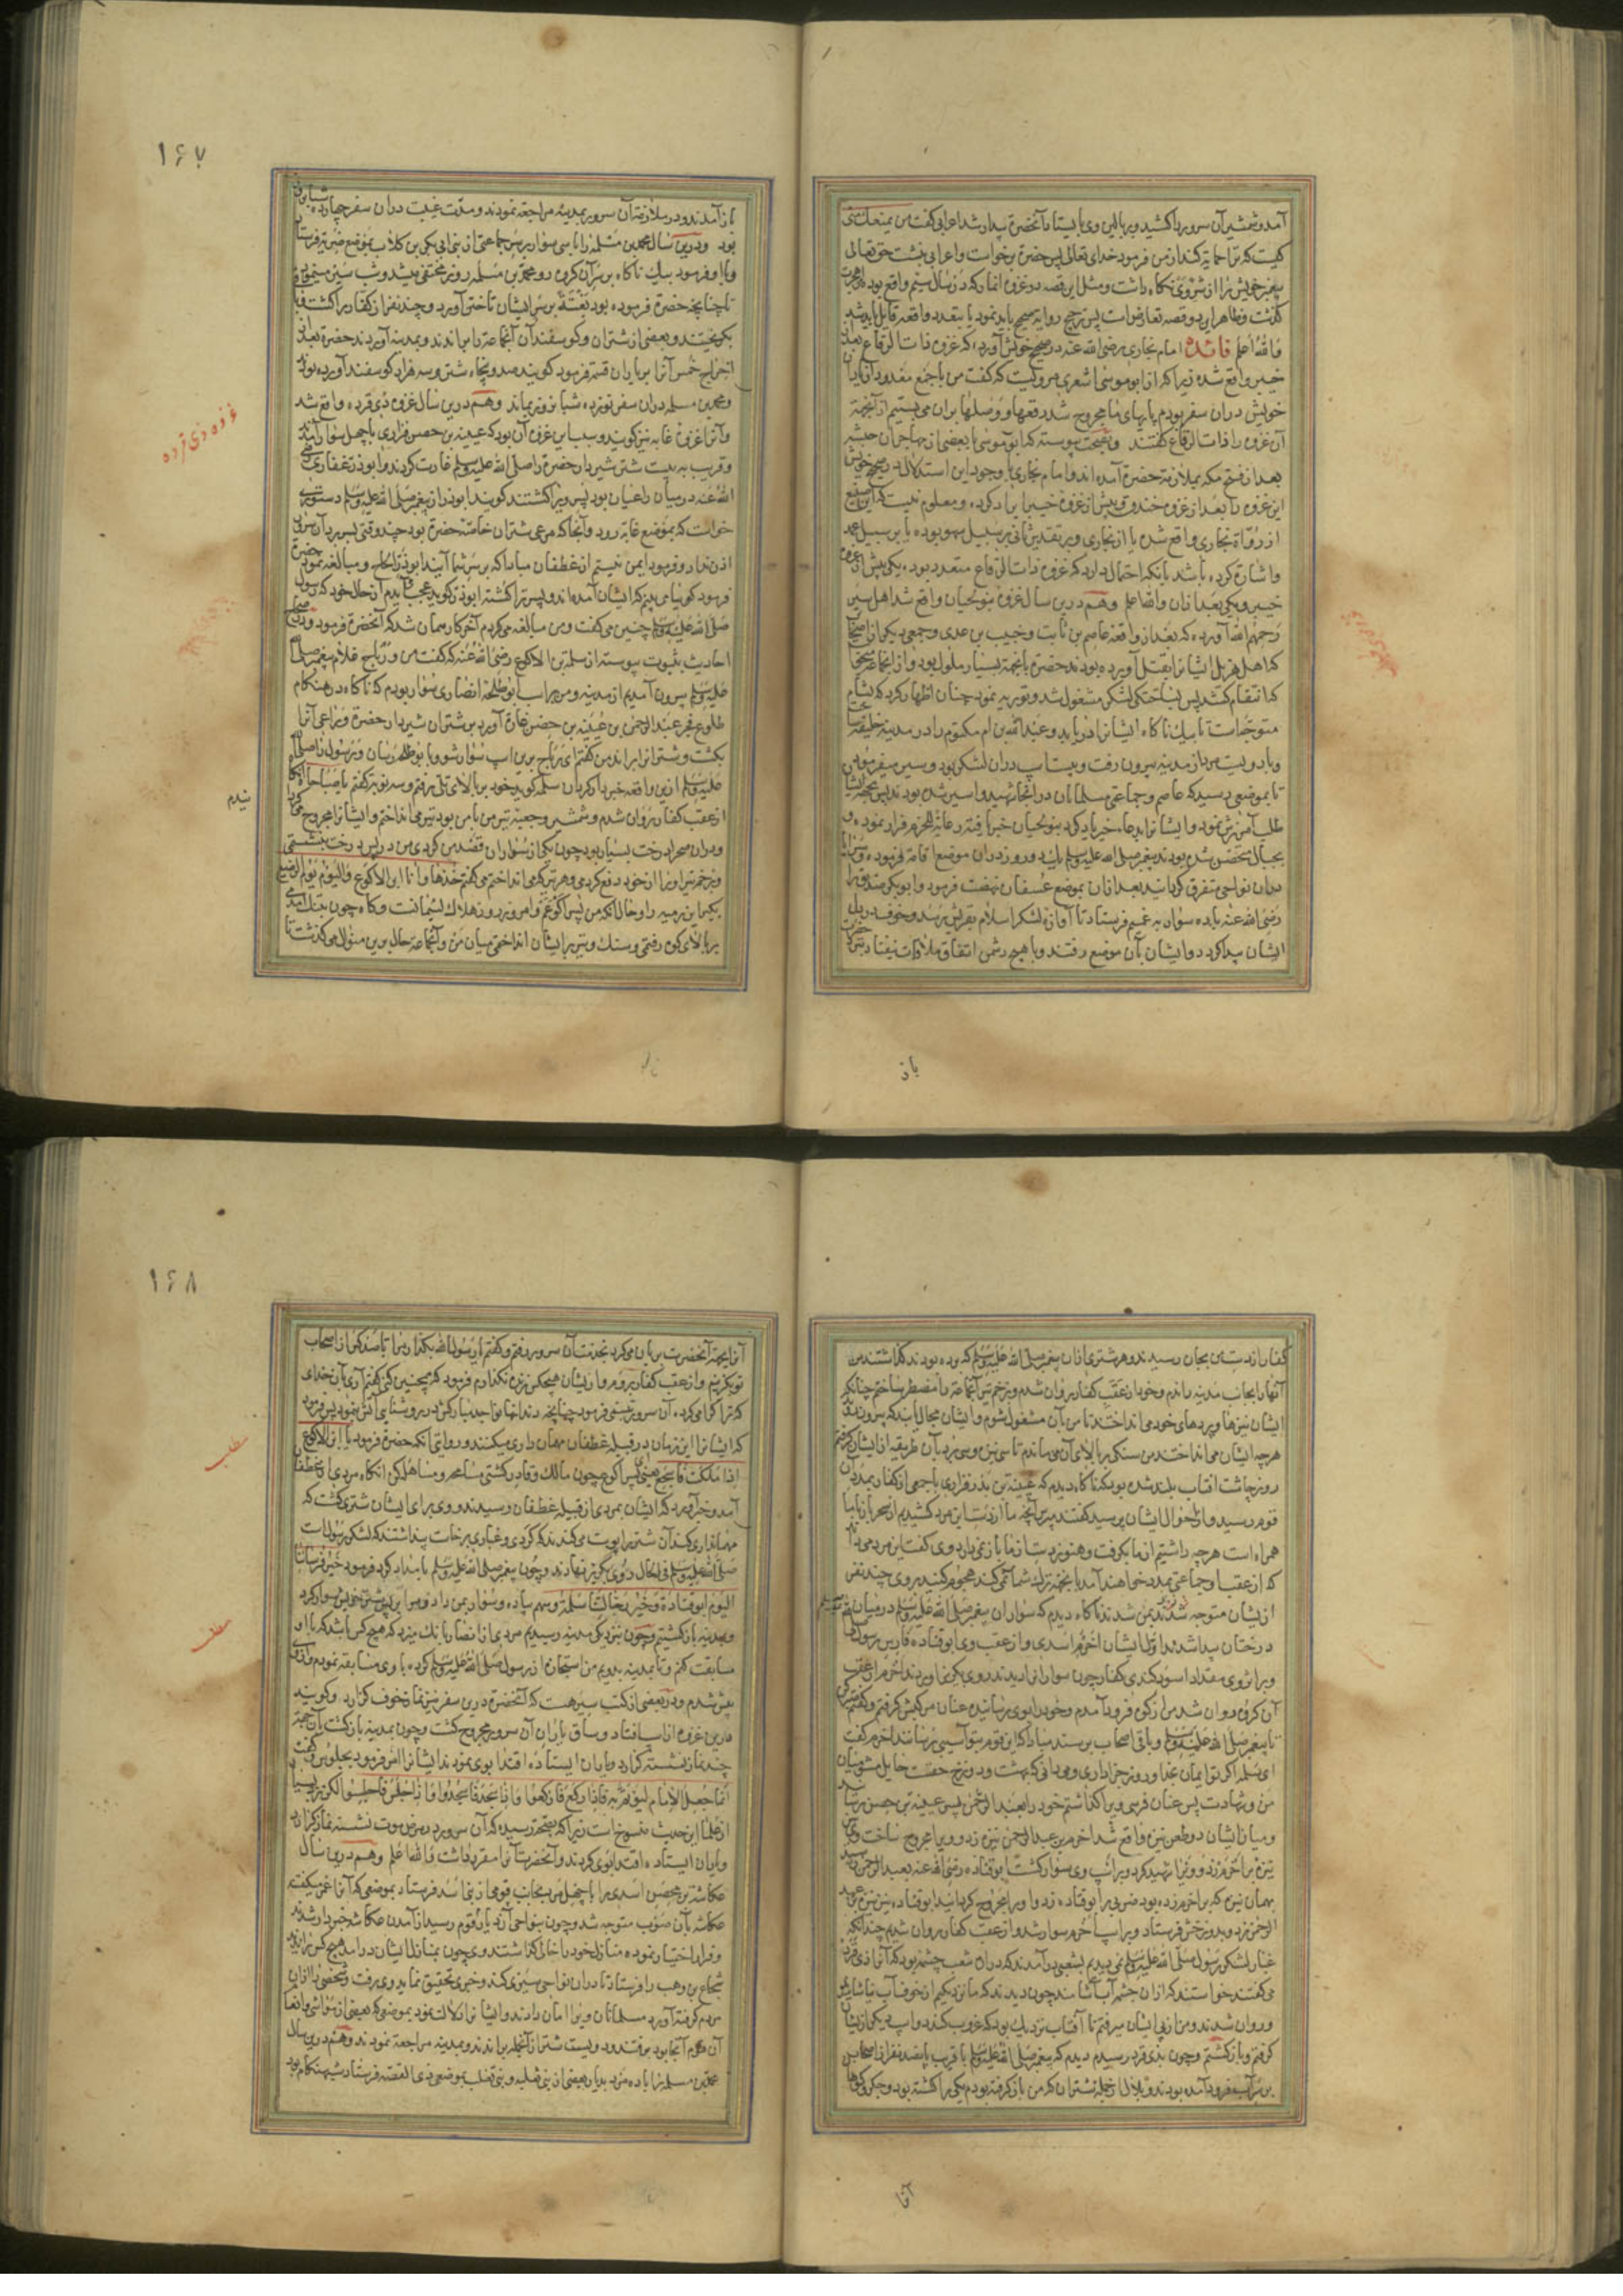 آمده شمشیر آن سرور را کشید و بر بالین وی بایستاد آنحضرة بیدار شد اعرابی کفت من یمنعک منی
کیست که ترا حمایة کند از من فرمود خدای تعالی پس حضرة برخواست و اعرابی بنشست حق تعالی
پیغمبر خویش را از شر وی نکاه داشت و مثل این قصه در غزوه انمار که در سال سیم واقع بود
کذشت و ظاهر این دو قصه تعارضست پس ترجیح روایة صحیح باید نمود یا بتعدد واقعه قایل باید شد
والله اعلم فائده امام بخاری رضی الله عنه در صحیح خویش آورده که غزوه ذات الرقاع بعد از
خیبر واقع شده زیرا که از ابو موسی اشعری مرویست که کفت من با جمع معدود از یاران
خویش دران سفر بودم پایهای ما مجروح شد رقعها و وصلها بران می بستیم ازینجهة
آن غزوه را ذات الرقاع کفتند و بصحت پیوسته که ابو موسی با بعضی از مهاجران حبشه
بعد از فتح مکه بملازمة حضرة آمده اند و امام بخاری با وجود این استدلال در صحیح خویش
این غزوه را بعد از غزوه خندق و پیش از غزوه خیبر ایراد کرده و معلوم نیست که این صنیع
از رواة بخاری واقع شده یا از بخاری و بر تقدیر ثانی بر سبیل سهو بوده یا بر سبیل عمد
و اشارة کرده باشد بانکه احتمال دارد که غزوه ذات الرقاع متعدد بوده یکی پیش از غزوه
خیبر و یکی بعد ازان والله اعلم وهم درین سال غزوه بنو لحیان واقع شد اهل سیر
رحمهم الله آورده که بعد از واقعه عاصم بن ثابت و خبیب بن عدی و جمعی دیکر از صحابه
که اهل هذیل ایشانرا بقتل آورده بودند حضرة باینجهة بسیار ملول بود و از انجماعة میخواست
که انتقام کشد پس بساختکی لشکر مشغول شد و توریه نمود چنان اظهار کرد که بشام
متوجه است تا بیک ناکاه ایشانرا دریابد و عبدالله بن ام مکتوم را در مدینه خلیفه ساخت
و با دویست مرد از مدینه بیرون رفت و بیست اسپ دران لشکر بود و سیر میفرمودند
تا بموضعی رسید که عاصم و جماعتی مسلمانان در انجا شهید و اسیر شده بودند
طلب آمرزش نمود و ایشانرا بدعاء خیر یاد کرد بنو لحیان خبر یافتند رعایة للحزم فرار نموده
بجبال متحصن شده بودند پیغمبر صلی الله علیه وسلم یک دو روز دران موضع اقامة فرموده
دران نواحی متفرق کردانید بعد ازان بموضع عسفان نهضت فرمود و ابو بکر صدیق را
رضی الله عنه با ده سوار به غمیم فرستاد تا آوازه لشکر اسلام بقریش برسد و خوف در دل
ایشان پیدا کردد و ایشان بآن موضع رفتند و با هیچ دشمن اتفاق ملاقات نیفتاد
باز
۱۶۷
باز آمدند و در ملازمة آن سرور بمدینه مراجعة نمودند و مدت غیبت دران سفر چهارده شبانروز
بود ودرین سال محمد بن مسلمه را با سی سوار بر سر جماعتی از بنی ابی بکر بن کلاب بموضع ضریه فرستاد
و با او فرمود بیک ناکاه بر سر آن کروه رو محمد بن مسلمه روز مختفی میشد و شب سیر مینمود
تا چنانچه حضرة فرموده بود بغتة بر سر ایشان تاختن آورد و چند نفر از کفار را کشت
بکریختند و بعضی از شتران و کوسفندان آنجماعة را براندند و بمدینه آوردند حضرة بعد از
اخراج خمس آنرا بر یاران قسمة فرمود کویند صد و پنجاه شتر و سه هزار کوسفند آورده بود
و محمد بن مسلمه دران سفر نوزده شبانروز بماند وهم درین سال غزوه ذی قرده واقع شد
و آنرا غزوة غابه نیز کویند و سبب این غزوه آن بود که عیینه بن حصن فزاری با چهل سوار آمد
و قریب به بیست شتر شیردار حضرة را صلی الله علیه وسلم غارت کردند و ابو ذر غفاری رضی
الله عنه در میان راعیان بود پسر ویرا کشتند کویند ابو ذر از پیغمبر صلی الله علیه وسلم دستوری
خواست که بموضع غابه رود و آنجا که مرعی شتران خاصه حضرة بود چند وقتی بسر برد آن سرور
اذن نداد و فرمود ایمن نیستم از غطفان مبادا که بر سر شما آیند ابو ذر الحاح و مبالغه نمود حضرة
فرمود کوئیا می بینم که ایشان آمده اند و پسر ترا کشته ابو ذر کوید عجب آیدم از حال خود که رسول
صلی الله علیه وسلم چنین می کفت و من مبالغه می کردم آخر کار همان شد که آنحضرة فرمود
احادیث بثبوت پیوسته از سلمه بن الاکوع رضی الله عنه که کفت من و رباح غلام پیغمبر صلی الله
علیه وسلم بیرون آمدیم از مدینه و من بر اسپ ابو طلحه انصاری سوار بودم که ناکاه در هنکام
طلوع فجر عبدالرحمن بن عیینه بن حصن غارة آورد بر شتران شیردار حضرة و راعی آنرا
بکشت و شترانرا براند من کفتم ای رباح برین اسپ سوار شو و بابو طلحه رسان و رسول را صلی الله
علیه وسلم ازین واقعه خبردار کردان سلمه کوید خود بر بالای تلی رفتم و سه نوبت کفتم یا صباحاه
از عقب کفار روان شدم و شمشیر و جعبه تیر من با من بود تیر می انداختم و ایشانرا مجروح
و دران صحرا درخت بسیار بود چون یکی از سواران قصد من کردی من در پس درخت بنشستمی
و بزخم تیر او را از خود دفع کردمی و هر تیر که می انداختم می کفتم خذها وانا ابن الاکوع والیوم یوم الرضع
بکیر این رمیه را و حال آنکه من پسر اکوعم و امروز روز هلاک لئیمانست و کاه چون بتنک آمدمی
بر بالای کوه رفتمی و سنک و تیر بر ایشان انداختمی میان من و آنجماعة حال برین منوال می کذشت تا
غزوه ذی قرده
کفار از دست من بجان رسیدند و هر شتری ازان پیغمبر صلی الله علیه وسلم که برده بودند کذاشتند من
آنها را بجانب مدینه راندم و خود از عقب کفار روان شدم و بزخم تیر آنجماعة را مضطر ساختم چنانکه
ایشان نیزها و بردهای خود می انداختند تا من بآن مشغول شوم و ایشان مجال یابند که بیرون روند
هر چه ایشان می انداختند من سنکی بر بالای آن می ماندم تا سی نیزه و سی برد بآن طریقه از ایشان کرفتم
روز بچاشت افتاب بلند شده بود که ناکاه دیدم که عیینه بن بدر فزاری با جمعی از کفار بمدد آن
قوم رسید و از احوال ایشان پرسید کفتند بپرس آنچه ما از دست این مرد کشیدیم از سحر باز با ما
همراه است هر چه داشتیم از ما بکرفت و هنوز دست از ما باز نمی دارد وی کفت این مرد می داند
که از عقب او جماعتی بمدد خواهند آمد باینجهة ترک شما نمی کند هجوم کنید بر وی چند نفر
از ایشان متوجه من شدند ناکاه دیدم که سواران پیغمبر صلی الله علیه وسلم در میان
درختان پیدا شدند اول ایشان اخرم اسدی و از عقب وی ابو قتاده فارس رسول
و بر اثر وی مقداد اسود کندی کفار چون سوارانرا دیدند روی بکریز آوردند اخرم از عقب
آن کروه دوان شد من از کوه فرود آمدم و خود را بوی رسانیده عنان مرکبش کرفتم و کفتم صبر کن
تا پیغمبر صلی الله علیه وسلم و باقی اصحاب برسند مبادا که این قوم بتو آسیبی رسانند اخرم کفت
ای سلمه اکر تو ایمان بخدا و روز جزا داری و می دانی که بهشت و دوزخ حقست حایل مشو میان
من و شهادت پس عنان فرس ویرا کذاشتم خود را بعبد الرحمن پسر عیینه بن حصن رسانید
و میان ایشان دو طعن نیزه واقع شد اخرم بن عبدالرحمن نیزه زد و ویرا مجروح ساخت
نیزه بر اخرم زد و ویرا شهید کرد و بر اسپ وی سوار کشت ابو قتاده رضی الله عنه بعبد الرحمن رسید
بهمان نیزه که بر اخرم زده بود ضربی بر ابو قتاده زد و او را مجروح کردانید ابو قتاده نیز نیزه بر عبد
الرحمن زد و بدوزخش فرستاد و بر اسپ اخرم سوار شد و از عقب کفار روان شدیم چندانکه
غبار لشکر رسول صلی الله علیه وسلم نمی دیدیم بشعبی درآمدند که دران شعب چشمه بود که آنرا ذی قرد
می کفتند خواستند که ازان چشمه آب آشامند چون دیدند که ما نزدیکیم از خوف آب نیاشامیدند
و روان شدند و من از پی ایشان میرفتم تا آفتاب نزدیک بود که غروب کند دو اسپ دیکر از ایشان
کرفتم و باز کشتم و چون بذی قرد رسیدم دیدم که پیغمبر صلی الله علیه وسلم با قریب پانصد نفر از اصحاب
بر سر آب فرود آمده بودند و بلال از جمله شتران که من باز کرفته بودم یکی را کشته بود و جکر و کوهان
آنرا
۱۶۸
آنرا بجهة آنحضرت بریان می کرد بخدمت آن سرور رفتم و کفتم یا رسول الله بکذار مرا تا صد کس از اصحاب
تو بکزینم و از عقب کفار بروم و از ایشان هیچکس زنده نکذارم فرمود که همچنین کنی کفتم آری بآن خدای
که ترا کرامی کرده آن سرور تبسم فرمود چنانچه دندانهای نواجذ مبارکش در روشنایی آتش بنمود پس فرمود
که ایشانرا این زمان در قبیله غطفان مهمان داری میکنند و روایتی آنکه حضرة فرمود یا ابن الاکوع
اذا ملکت فاسجح یعنی ای پسر اکوع چون مالک و قادر کشتی مسامحه و مساهله کن انکاه مردی از غطفان
آمد و خبر آورد که ایشان بمردی از قبیله غطفان رسیدند و وی برای ایشان شتری کشت که
مهمانداری کند آن شتر را پوست می کندند که کردی و غباری برخاست پنداشتند که لشکر رسولست
صلی الله علیه وسلم فی الحال روی بکریز نهادند و چون پیغمبر صلی الله علیه وسلم بامداد کرد فرمود خیر فرساننا
الیوم ابو قتادة وخیر رجالتنا سلمة وسهم پیاده و سوار بمن داد و مرا بر پس شتر خویش سوار کرد
و بمدینه باز کشتیم و چون نزدیک مدینه رسیدیم مردی از انصار بانک میزد که هیچ کس باشد که با او
مسابقت کنم و تا بمدینه بدویم من استجازه از رسول صلی الله علیه وسلم کرده با وی مسابقه نمودم و از وی
پیش شدم و در بعضی از کتب سیر هست که آنحضرة درین سفر نیز نماز خوف کزارد و کویند
درین غزوه از اسپ افتاد و ساق یا ران آن سرور مجروح کشت و چون بمدینه باز کشت بآن جهة
چند نماز نشسته کزارد و یاران ایستاده اقتدا بوی نمودند ایشانرا امر فرمود بجلوس و کفت
انما جعل الامام لیؤتم به فاذا رکع فارکعوا واذا سجد فاسجدوا واذا جلس فاجلسوا لکن نزد بسیاری
از علما این حدیث منسوخ است زیرا که بصحة رسیده که آن سرور در مرض موت نشسته نماز کزارد
و یاران ایستاده اقتدا بوی کردند و آنحضرت آنرا مقرر داشت والله اعلم وهم درین سال
عکاشه بن محصن اسدی را با چهل مرد بجانب قومی از بنی اسد فرستاد بموضعی که آنرا غمر میکفتند
عکاشه بآن صوب متوجه شد و چون بنواحی آن دیار قوم رسید از آمدن عکاشه خبردار شدند
و فرار اختیار نموده منازل خود را خالی کذاشتند وی چون بمنازل ایشان درآمد هیچ کس را ندید
شجاع بن وهب را فرستاد تا دران نواحی سیری کند و خبری تحقیق نماید وی برفت و شخصی را ازان
مردم کرفته آورد مسلمانان ویرا امان دادند و ایشانرا دلالت نمود بموضعی که بعضی از مواشی و انعام
آن قوم آنجا بود برفتند و دویست شتر از آنجمله براندند و بمدینه مراجعة نمودند وهم درین سال
محمد بن مسلمه را با ده مرد بدیار بعضی از بنی ثعلبه و بنی ثعلب بموضعی ذی القصه فرستاد شبهنکام بود
مطلب
مطلب